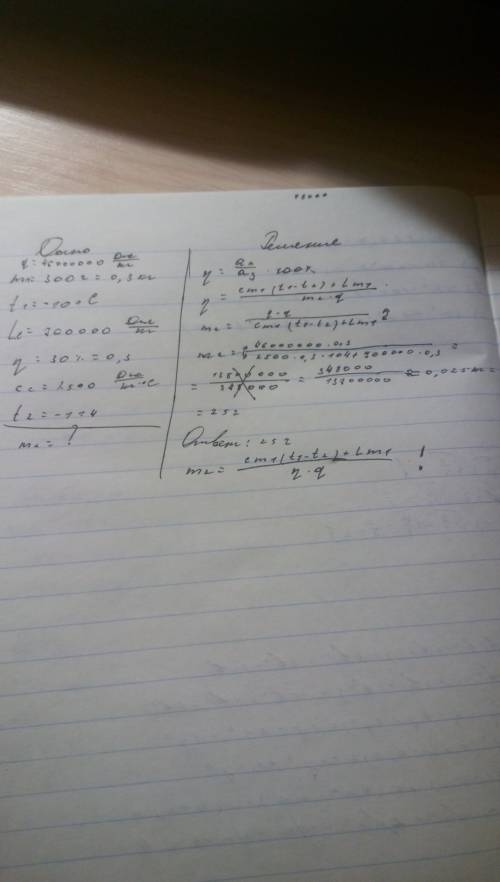 Дано
q = 46000000 Дж/кг
m₁ = 300г = 0,3 кг
t₁ = -10°C
L = 900000 Дж/кг
η = 30% = 0,3
c = 2500 Дж/кг·°C
t₂ = -114
m₂ = ?
Решение
η = / · 100%
η = cm₁(t₁-t₂)+Lm₁ / m₂·q
cm₁(t₁-t₂)+Lm₁
m₂ = 46000000·0,3 / 2500·0,3·104+900000·0,3 =
= 13800000 / 348000 = 348000 / 13800000 ≈ 0,025
= 25г
Ответ: 25г
m₂ = cm₁(t₁-t₂)+Lm₁ / η·q !